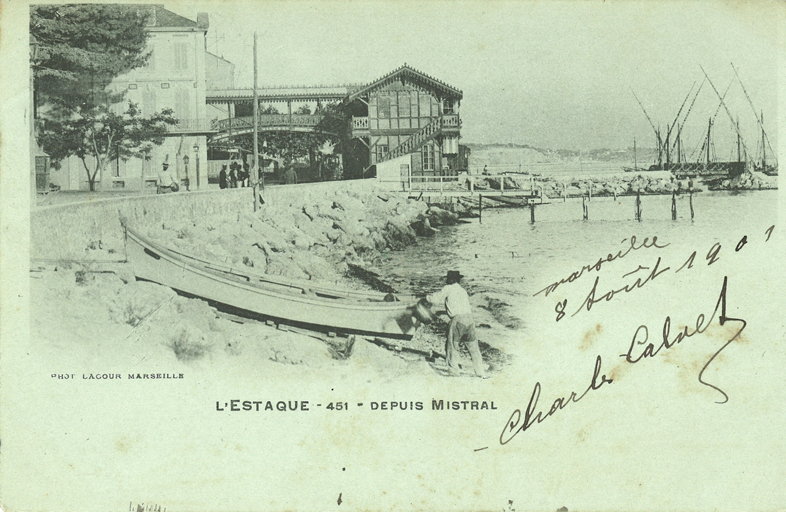 marseille
8 Août 1901
Charles Calvet
PHOT LACOUR MARSEILLE
L'ESTAQUE - 451 - DEPUIS MISTRAL